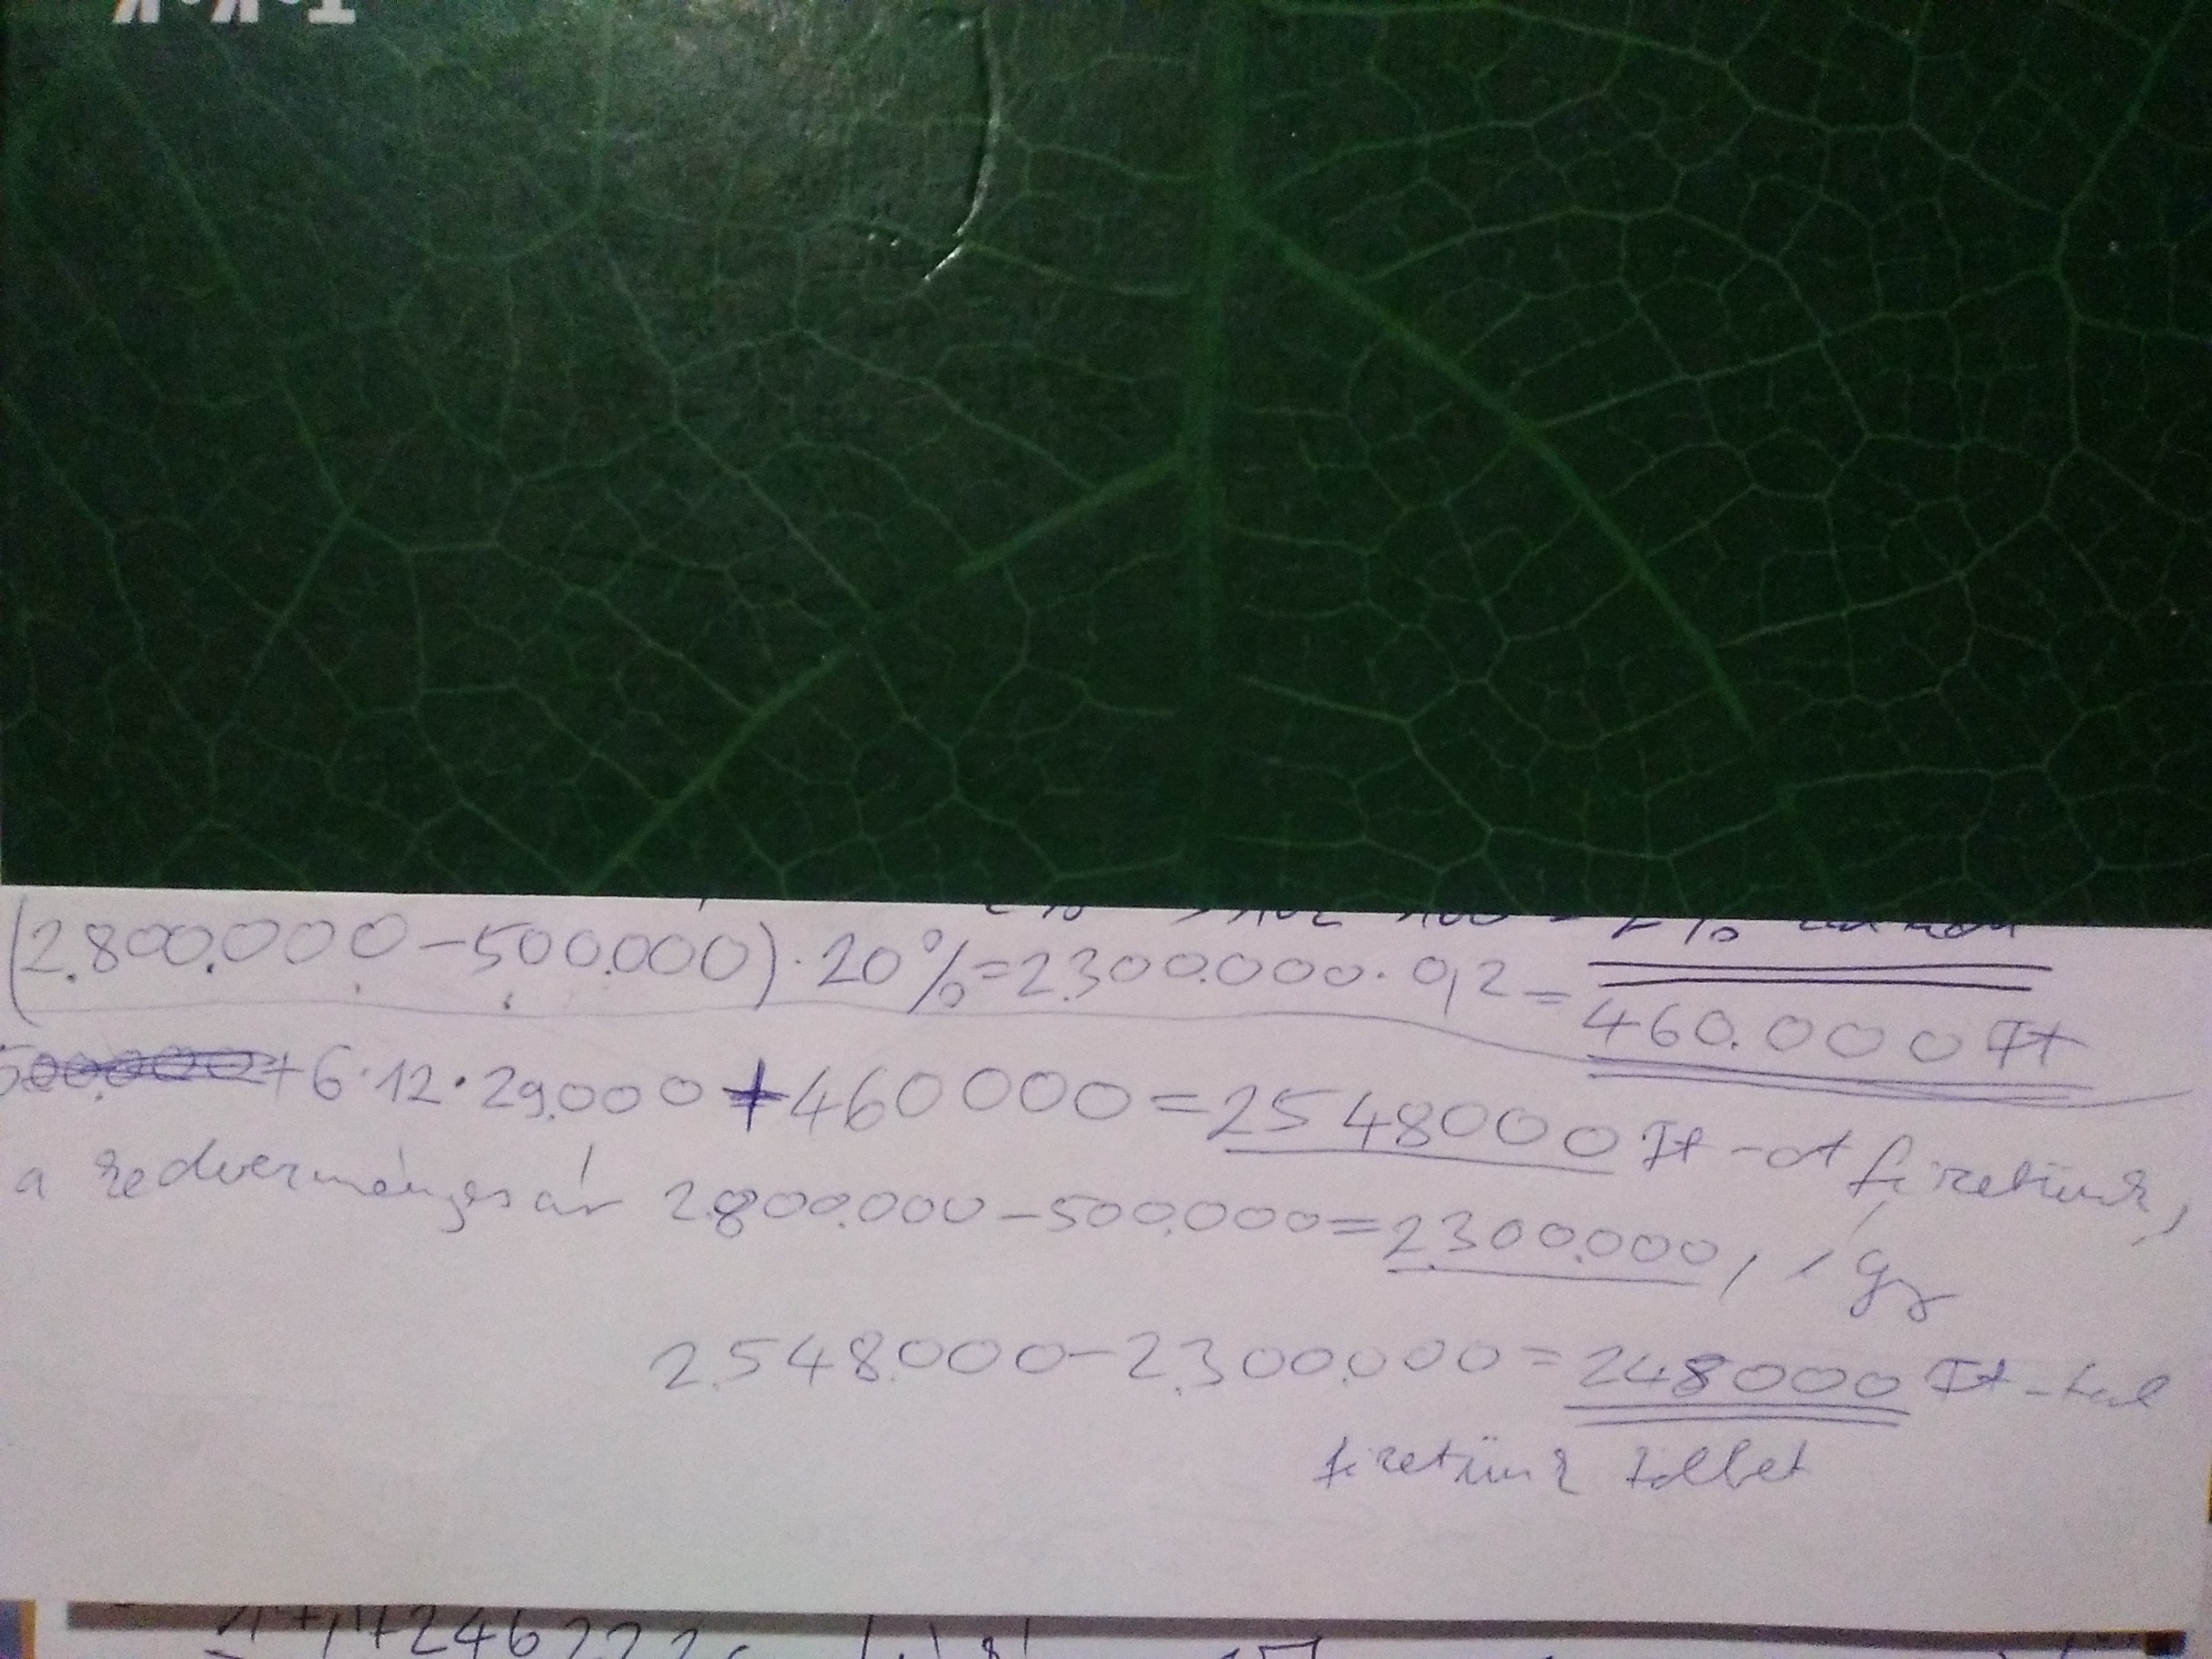 (2.800.000-500.000)·20%=2.300.000·0,2=
460.000 Ft
500.000+6·12·29.000+460000=2548000 Ft-ot fizetünk,
a kedvezményes ár 2.800.000-500.000=2.300.000, így
2.548.000-2.300.000=248000 Ft-tal
fizetünk többet